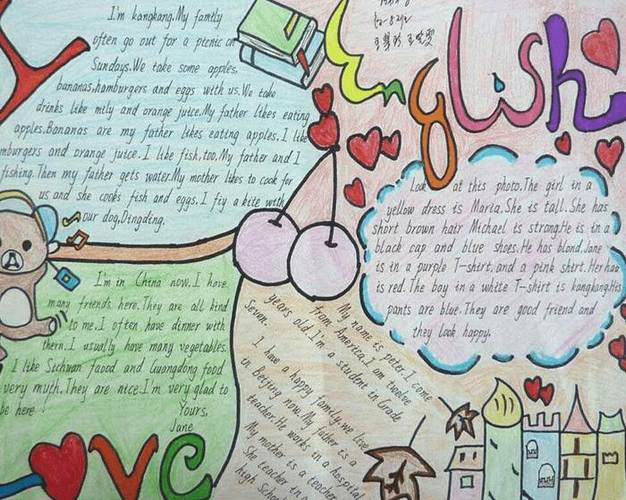 English
I'm kangkang.My family
often go out for a picnic on
Sundays.We take some apples,
bananas,hamburgers and eggs with us.We take
drinks like mily and orange juice.My father likes eating
apples.Bananas are my father likes eating apples.I like
mburgers and orange juice.I like fish,too.My father and I
fishing.Then my father gets water.My mother likes to cook for
us and she cooks fish and eggs.I fiy a kite with
our dog,Dingding.
Look at this photo.The girl in a
yellow dress is Maria.She is tall.She has
short brown hair Michael is strong.He is in a
black cap and blue shoes.He has blond.Jane
is in a purple T-shirt.and a pink shirt.Her hae
is red.The boy in a white T-shirt is kangkang.His
pants are blue.They are good friend and
they look happy.
I'm in China now.I have
many friends here.They are all kind
to me.I often have dinner with
them.I usually have many vegetables.
I like Sichwan faood and Guangdong food
very myth.They are nice.I'm very glad to
be here
Yours,
Jane
My name is peter.I come
from America.I am twelve
years old.I'm a student in Grade
Seven.
I have a happy family.we live
in Beijing now.My father is a
teacher.He works in a hospital
My mother is a teacher
She teacher in a
high School
OVE